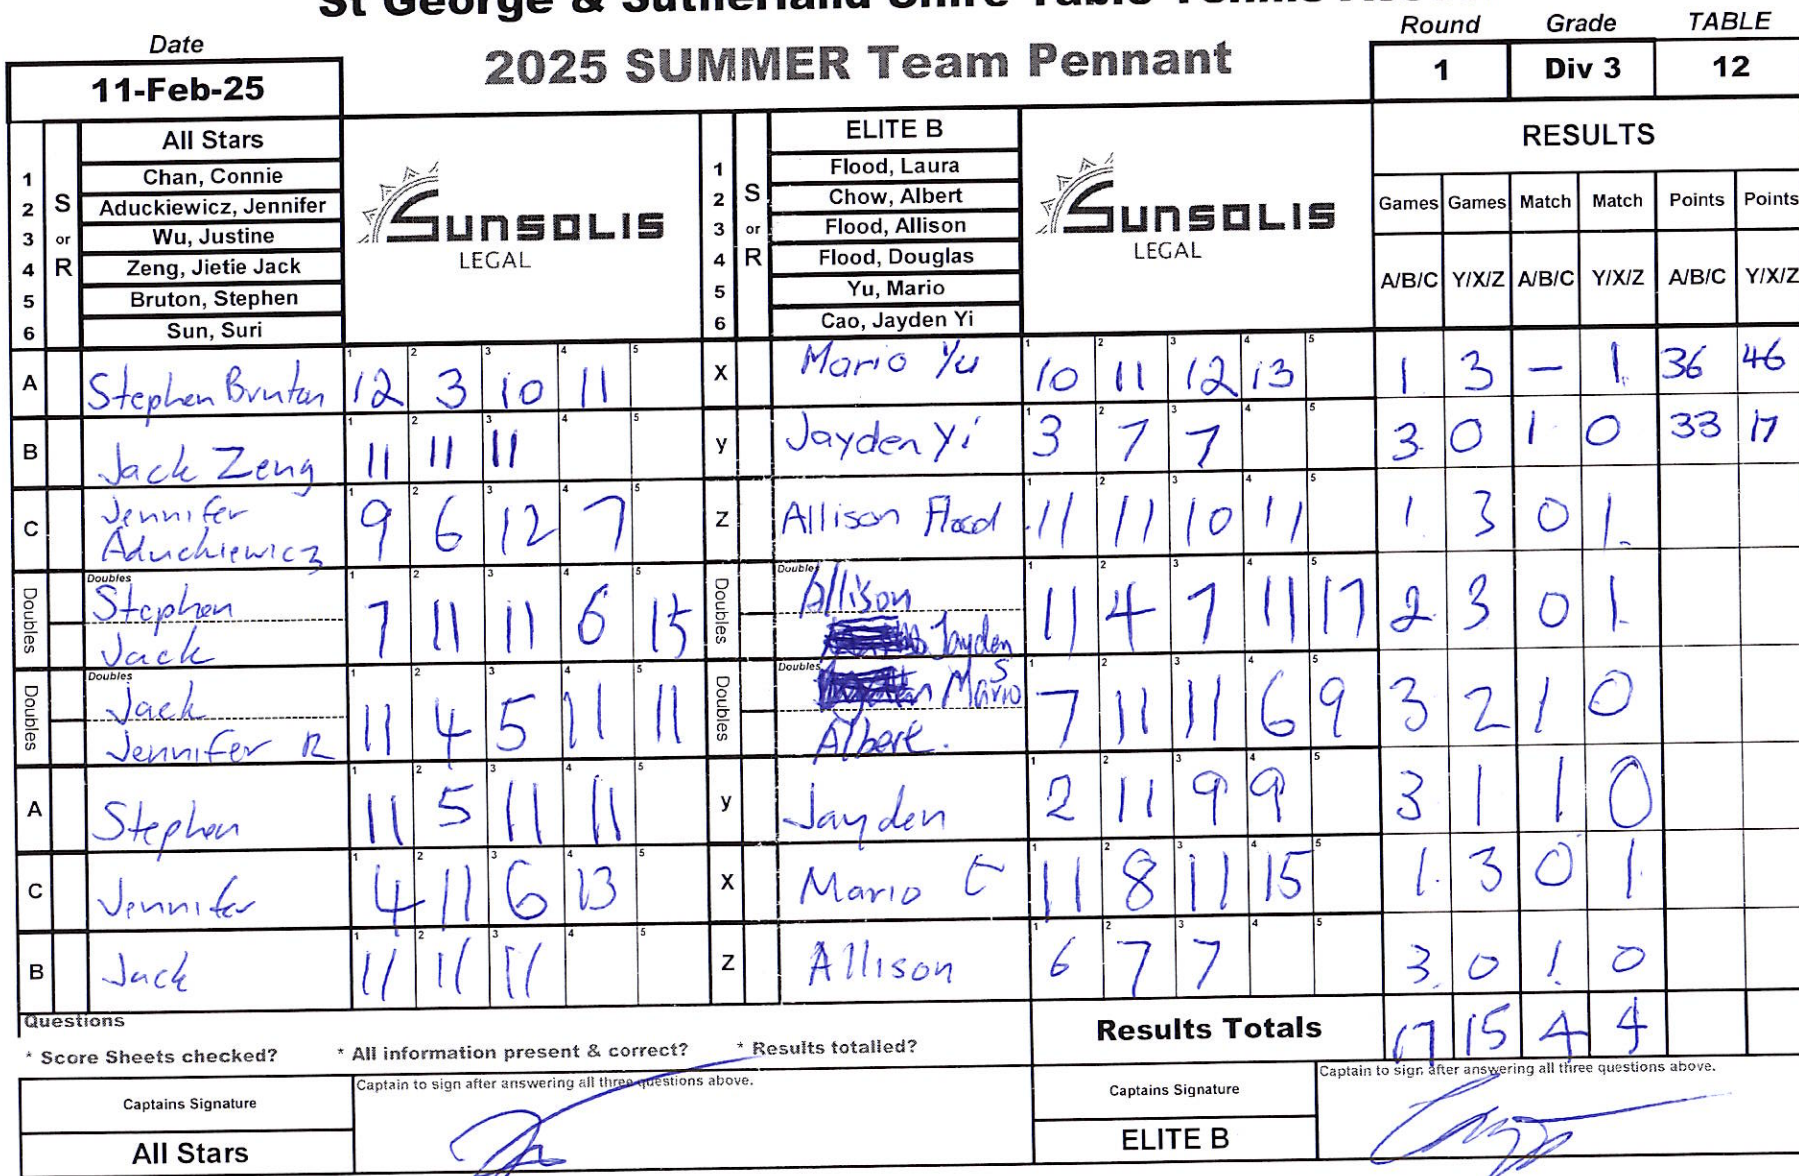 St George & Sutherland Shire Table Tennis
Date
11-Feb-25
2025 SUMMER Team Pennant
Round Grade TABLE
1 Div 3 12
S or R
All Stars
1 Chan, Connie
2 Aduckiewicz, Jennifer
3 Wu, Justine
4 Zeng, Jietie Jack
5 Bruton, Stephen
6 Sun, Suri
SUNSOLIS
LEGAL
S or R
ELITE B
1 Flood, Laura
2 Chow, Albert
3 Flood, Allison
4 Flood, Douglas
5 Yu, Mario
6 Cao, Jayden Yi
SUNSOLIS
LEGAL
RESULTS
Games Games Match Match Points Points
A/B/C Y/X/Z A/B/C Y/X/Z A/B/C Y/X/Z
A Stephen Bruton 12 3 10 11 X Mario Yu 10 11 12 13 1 3 – 1. 36 46
B Jack Zeng 11 11 11 y Jayden Yi 3 7 7 3 0 1 0 33 17
C Jennifer Aduckiewicz 9 6 12 7 Z Allison Flood 11 11 10 11 1 3 0 1.
Doubles Stephen Jack 7 11 11 6 15 Doubles Allison Jayden 11 4 7 11 17 2 3 0 1.
Doubles Jack Jennifer R 11 4 5 11 11 Doubles Mario S Albert. 7 11 11 6 9 3 2 1 0
A Stephen 11 5 11 11 y Jayden 2 11 9 9 3 1 1 0
C Jennifer 4 11 6 13 X Mario 11 8 11 15 1. 3 0 1
B Jack 11 11 11 Z Allison 6 7 7 3. 0 1. 0
Questions
* Score Sheets checked? * All information present & correct? * Results totalled?
Results Totals 17 15 4 4
Captains Signature
Captain to sign after answering all three questions above.
All Stars
Captains Signature
Captain to sign after answering all three questions above.
ELITE B